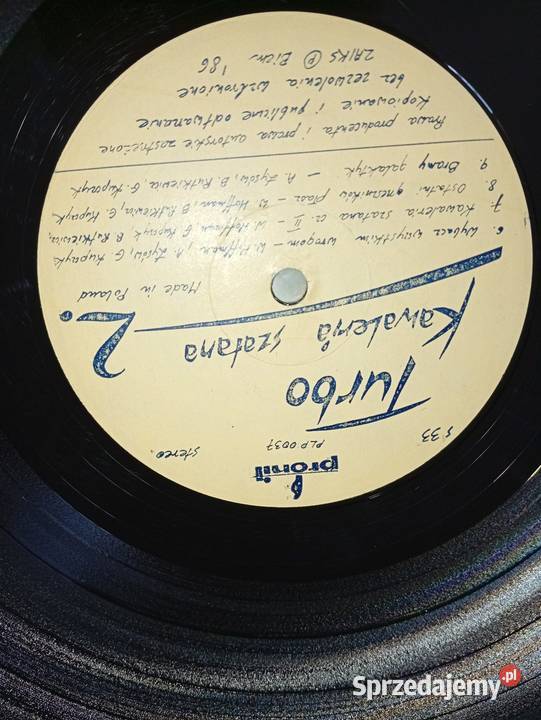 pronit
PLP 0037
S 33
stereo.
Turbo
Kawaleria szatana
2.
Made in Poland
6. Wybacz wszystkim wrogom – W. Hoffman, A. Łysów, G. Kupczyk
7. Kawaleria szatana cz. II – W. Hoffman, G. Kupczyk, B. Rutkiewicz,
8. Ostatni grzeszników płacz – W. Hoffman, B. Rutkiewicz, G. Kupczyk
9. Bramy galaktyk – A. Łysów, B. Rutkiewicz, G. Kupczyk
Prawa producenta i prawa autorskie zastrzeżone
Kopiowanie i publiczne odtwarzanie
bez zezwolenia wzbronione
ZAIKS Ⓟ Biem, '86
Sprzedajemy.pl